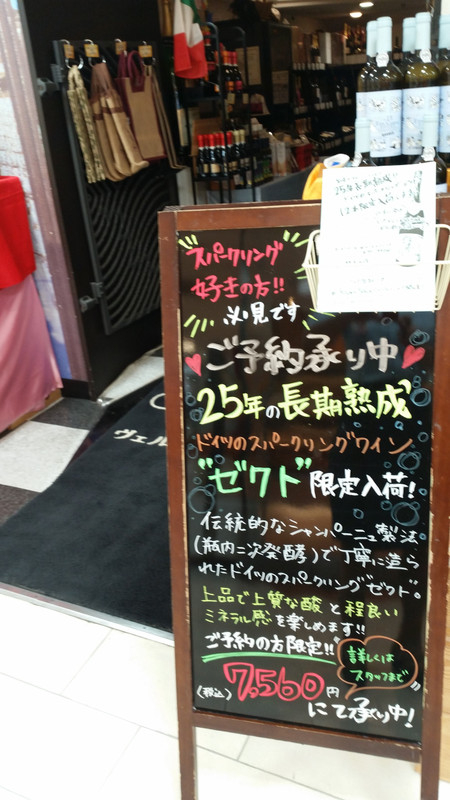 25年長期熟成!!
スパークリング
好きの方!!
必見です
ご予約承り中
25年の長期熟成
ドイツのスパークリングワイン
"ゼクト"限定入荷!
伝統的なシャンパーニュ製法
(瓶内二次発酵)で丁寧に造ら
れたドイツのスパークリング"ゼクト"。
上品で上質な酸と程良い
ミネラル感を楽しめます!!
ご予約の方限定!!
詳しくは
スタッフまで
(税込)7,560円
にて承り中!
ヴェル